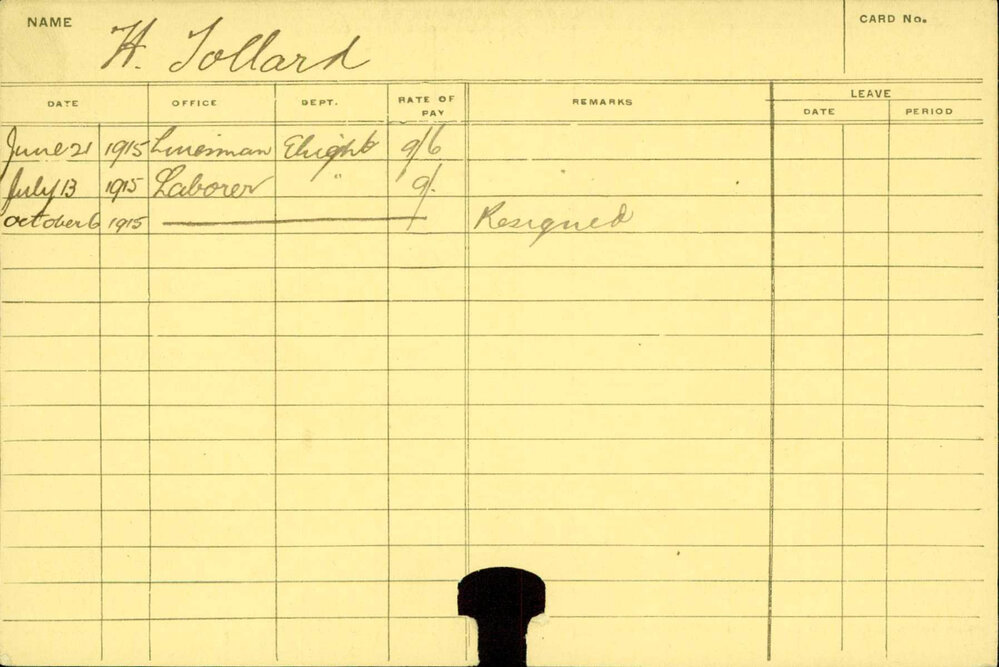 NAME H. Tollard CARD No.
DATE OFFICE DEPT. RATE OF PAY REMARKS LEAVE
DATE PERIOD
June 21 1915 Linesman Elight 9/6
July 13 1915 Laborer " 9/.
October 6 1915 Resigned